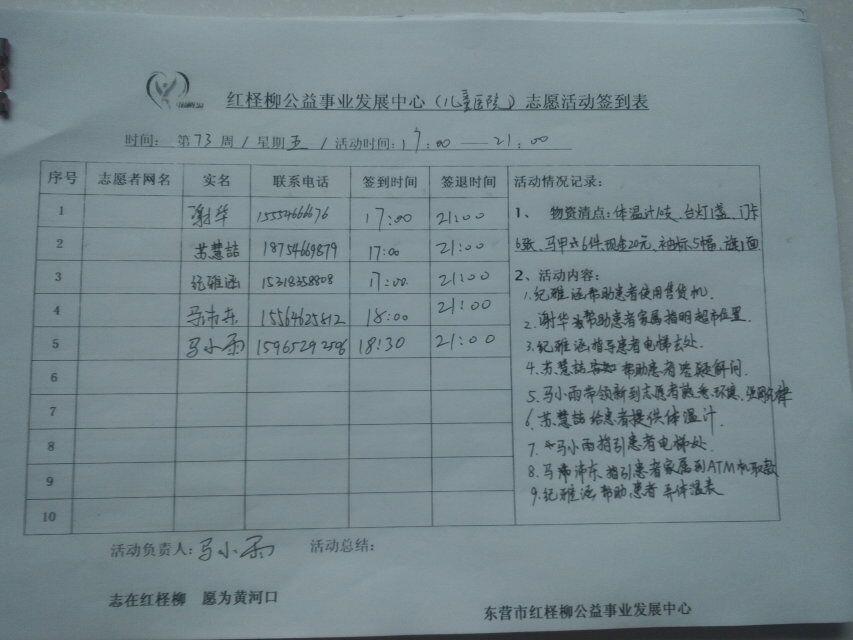 红柽柳公益事业发展中心（儿童医院）志愿活动签到表
时间： 第 73 周 / 星期 五 / 活动时间：17：00 — 21：00
序号 志愿者网名 实名 联系电话 签到时间 签退时间 活动情况记录：
1 谢华 15554666676 17:00 21:00
2 苏慧喆 18754669879 17:00 21:00
3 纪雅涵 15318358808 17:00 21:00
4 马沛东 15564625812 18:00 21:00
5 马小雨 15965292596 18:30 21:00
6
7
8
9
10
1、 物资清点：体温计1支、台灯1盏、门卡
6张、马甲六6件,现金20元、袖标5幅、旗1面
2、活动内容：
1.纪雅涵帮助患者使用售货机.
2.谢华帮助患者家属指明超市位置.
3.纪雅涵指导患者电梯去处.
4.苏慧喆帮助患者答疑解问.
5.马小雨带领新到志愿者熟悉环境,
6.苏慧喆给患者提供体温计.
7.马小雨指引患者电梯处.
8.马沛东指引患者家属到ATM机取款
9.纪雅涵帮助患者弄体温表
活动负责人：马小雨 活动总结：
志在红柽柳 愿为黄河口
东营市红柽柳公益事业发展中心